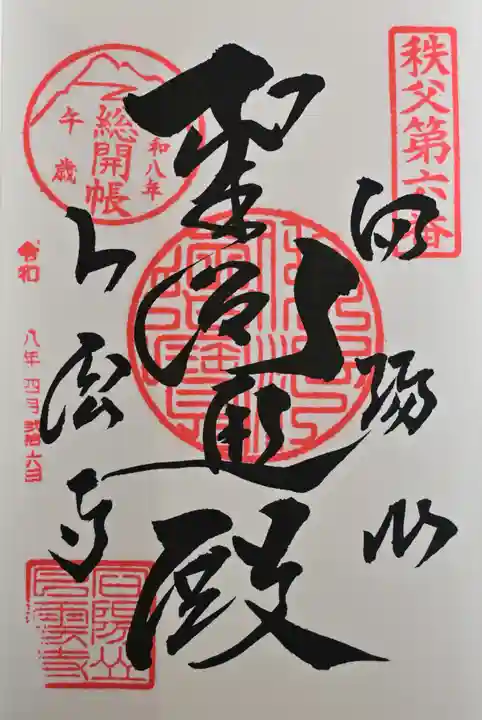 秩父第六番
向陽山
殿
卜雲寺
令和八年
総開帳
午歳
令和
八年四月弐拾六日
向陽山
卜雲寺